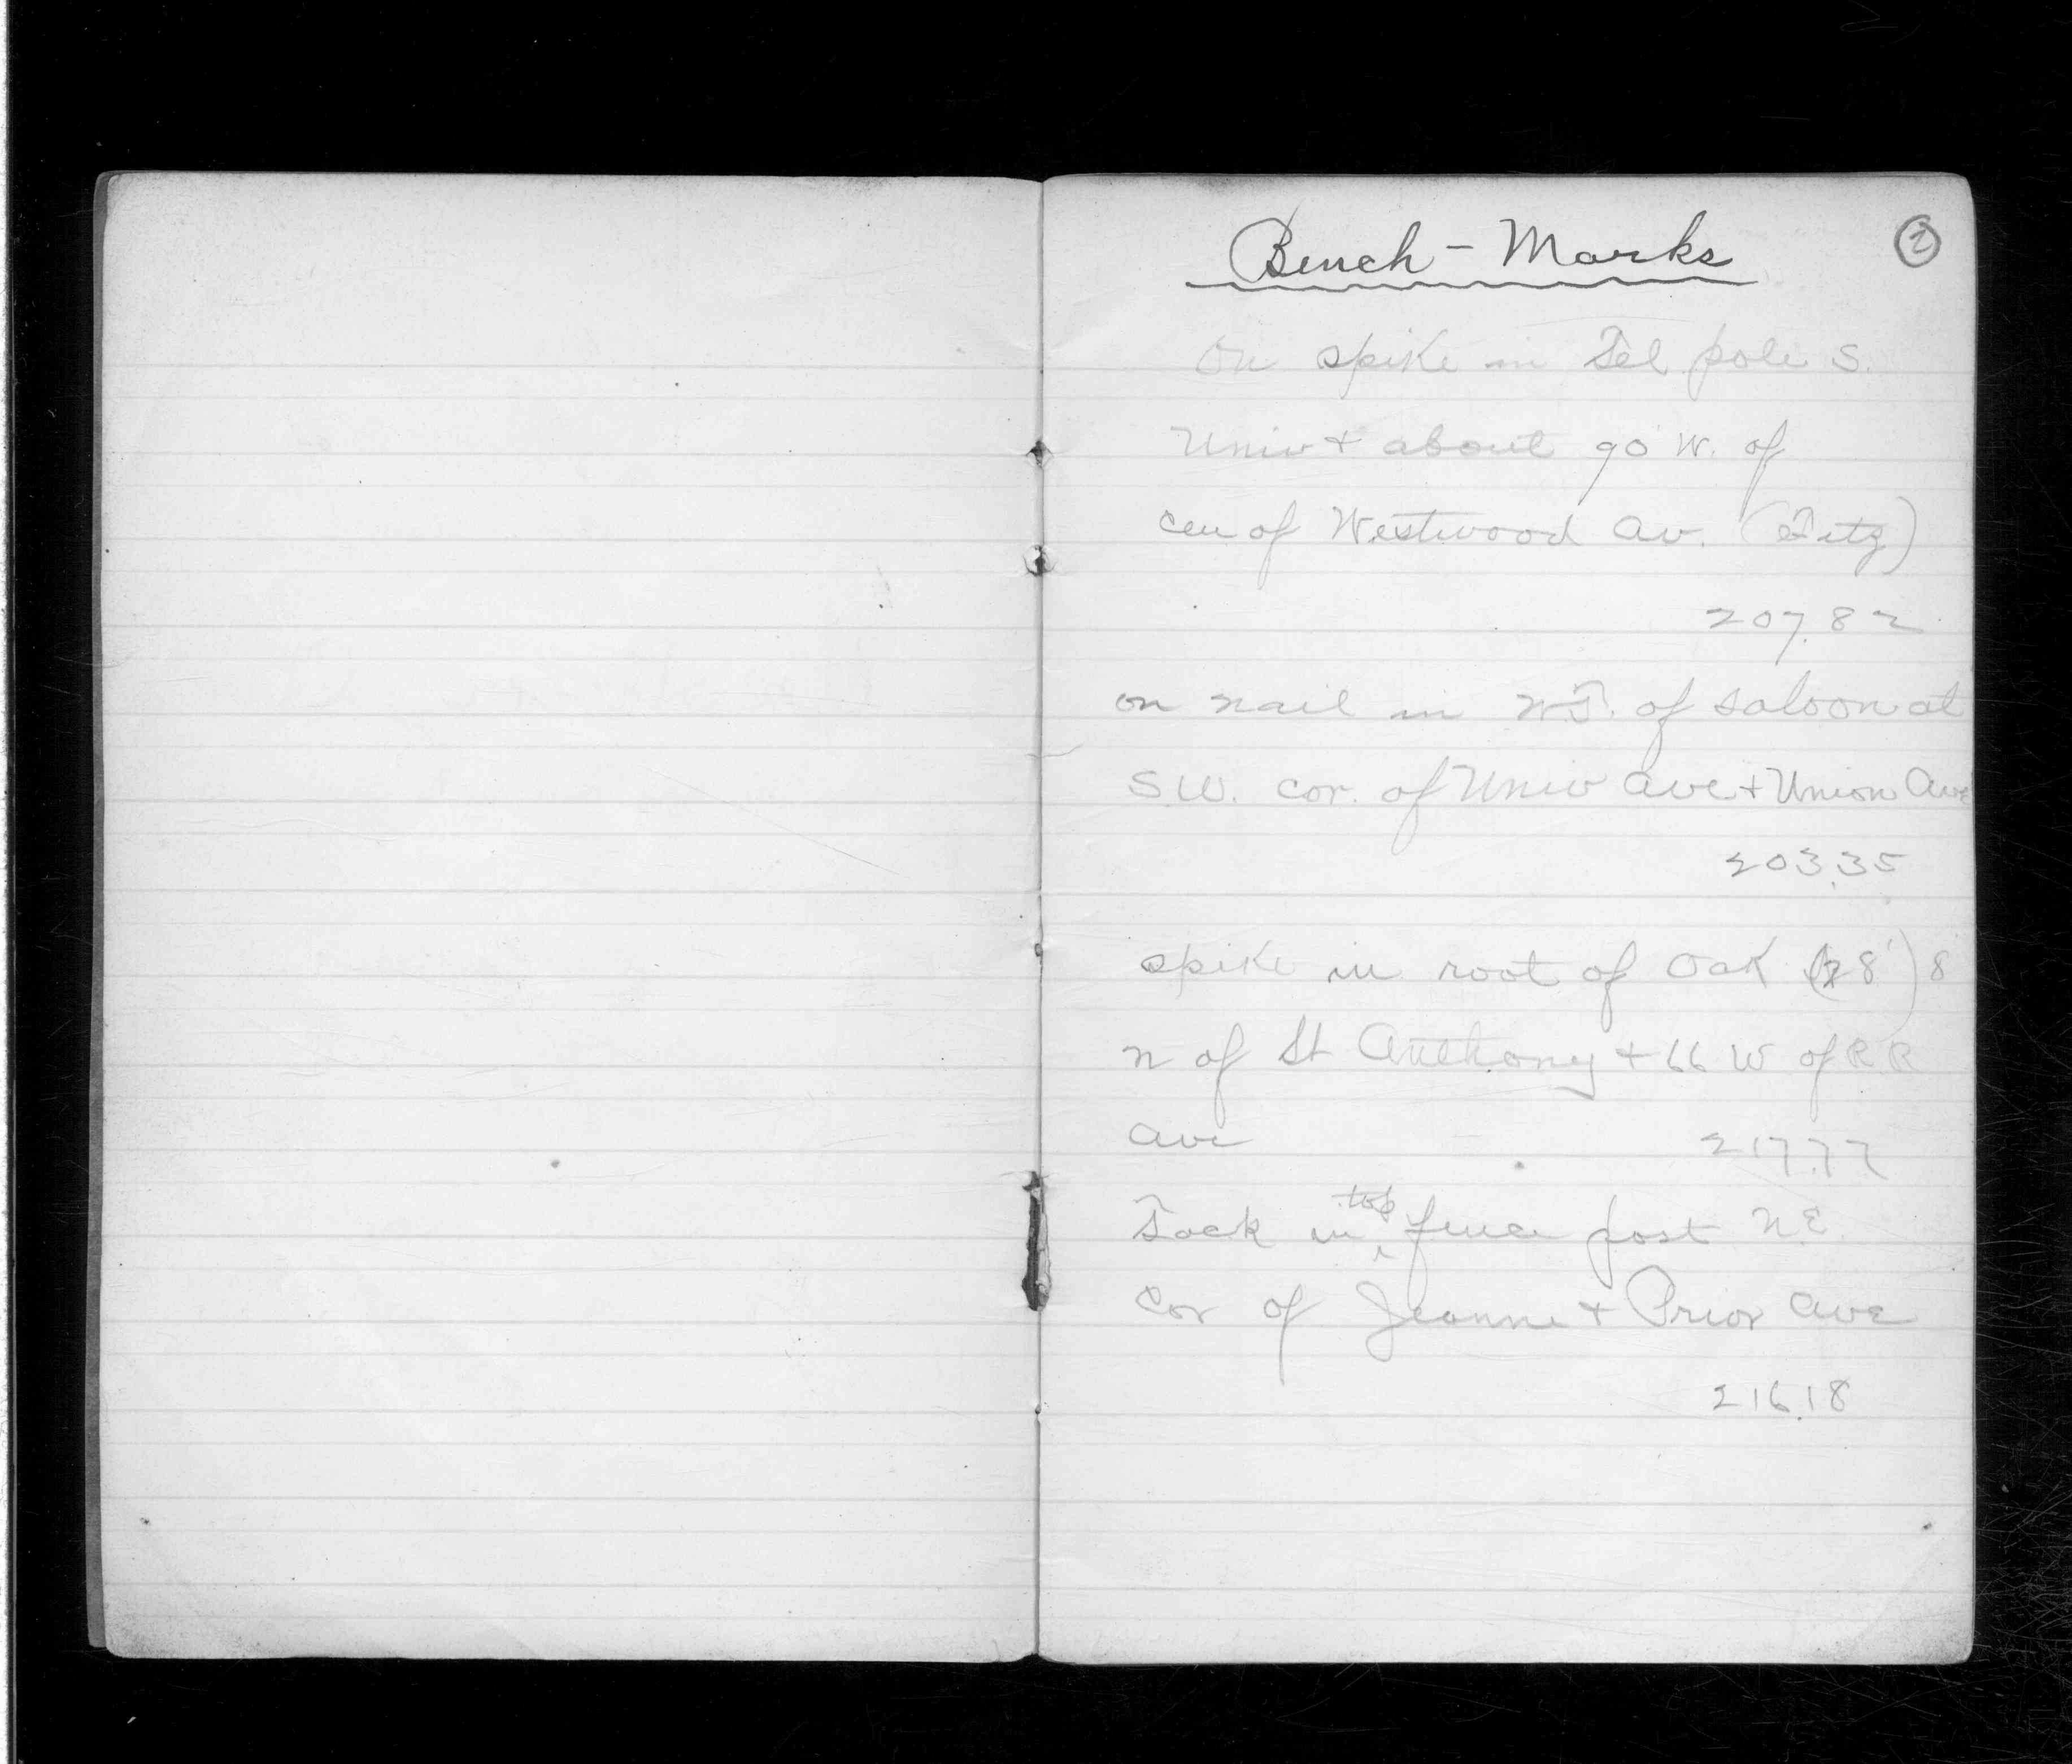 Bench - Marks
2
On spike in Tel pole S.
Univ + about 90 W. of
cen of Westwood Av. (Fitz)
207.82
on nail in W.T. of saloon at
S.W. cor. of Univ Ave + Union Ave
203.35
spike in root of Oak 8') 8
n of St Anthony + 66 W of R.R
Ave 217.77
Tack in top fence post N.E.
Cor of Jeanne + Prior Ave
216.18